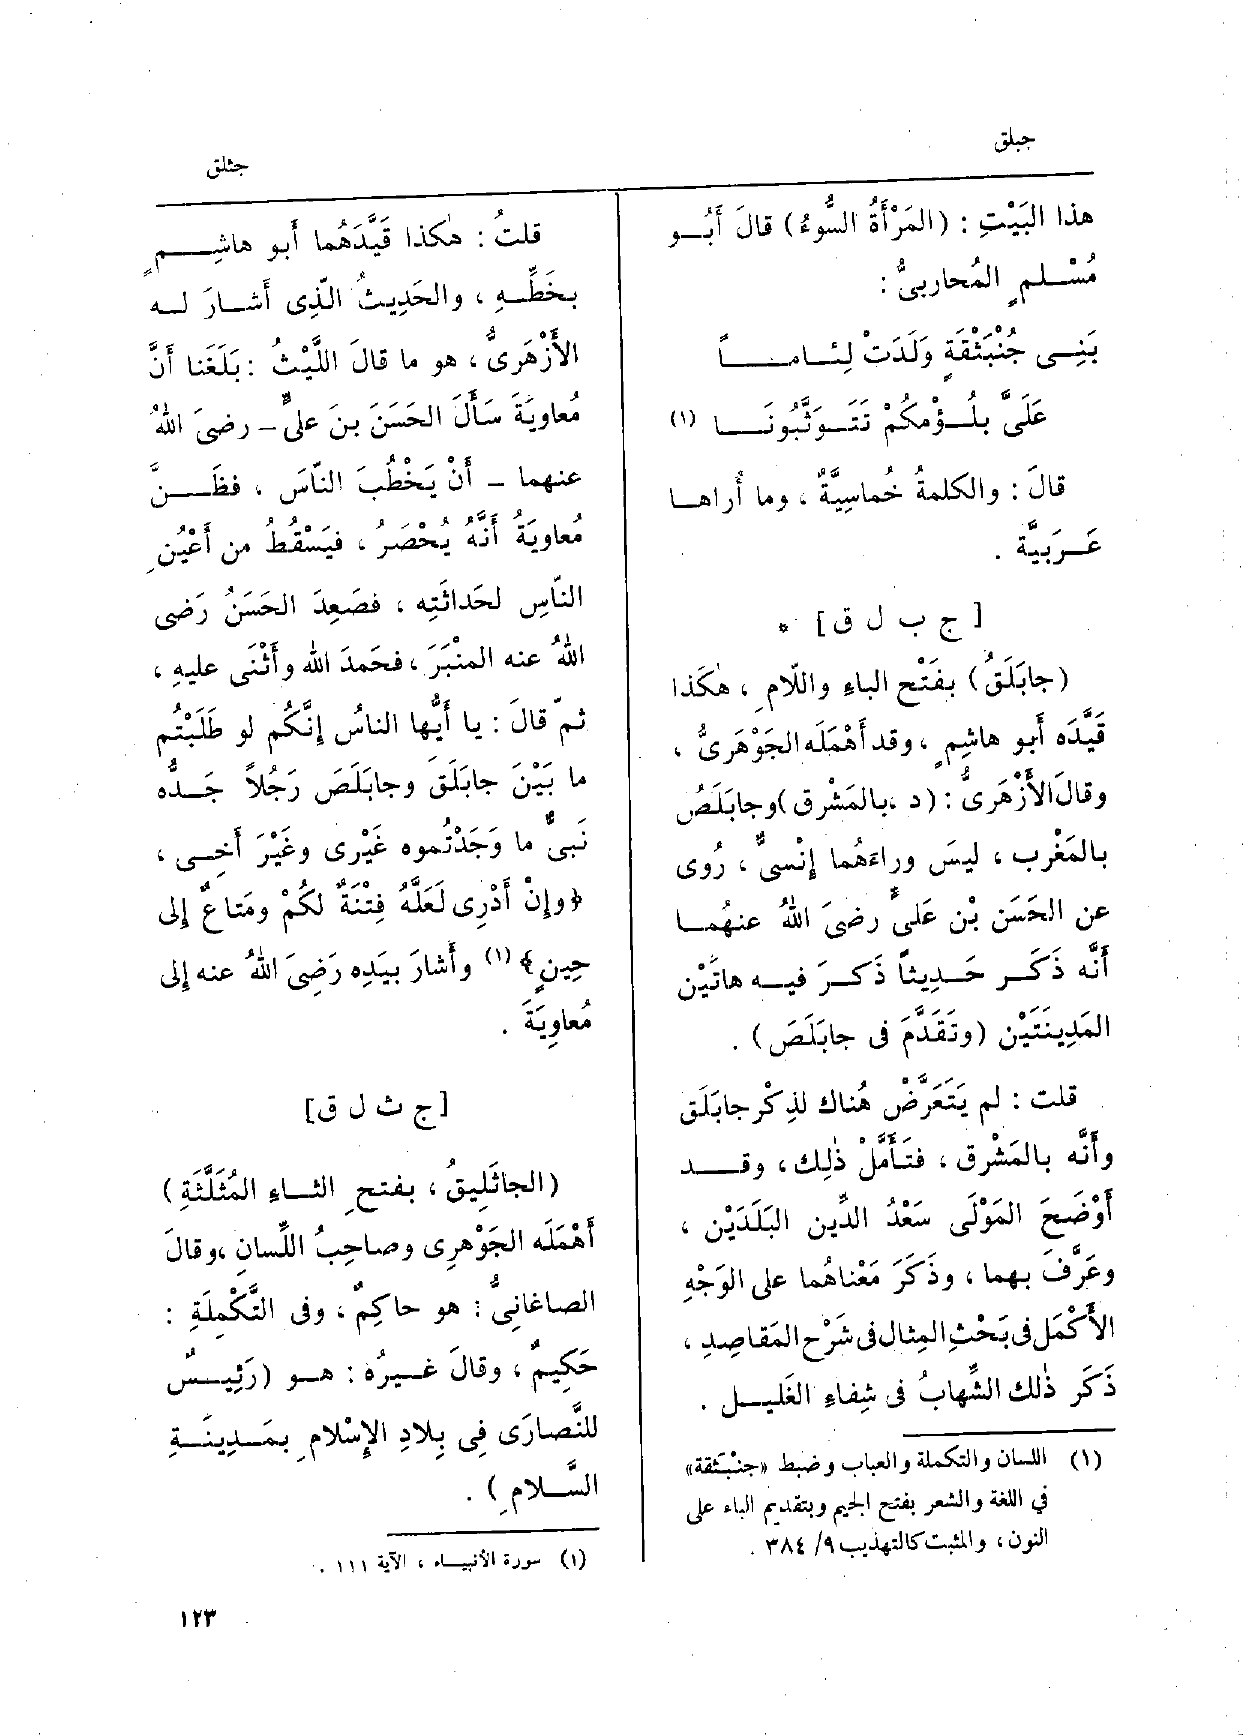 جبلق
جثلق
هذا البَيْتِ : (المَرْأَةُ السُّوءُ) قالَ أَبُــو
مُسْــلمٍ المُحاربىُّ :
بَنِــى جُنْبَثْقَةٍ وَلَدَتْ لِئــامــــاً
عَلَىَّ بلُــؤمِكُمْ تَتَــوَثَّبُونَـــا (١)
قالَ : والكلمةُ خُماسِيَّةٌ ، وما أُراهــا
عَــرَبيَّة .
[ ج ب ل ق ] *
(جابَلَقُ) بفَتْح الباءِ واللّامِ ، هٰكَذا
قَيَّدَه أَبو هاشِمٍ ، وقد أَهْمَلَه الجَوْهَرىُّ ،
وقالَ الأَزْهَرىُّ : (د ،بالمَشْرِق )وجابَلَصُ
بالمَغْرِب ، ليسَ وراءَهُما إِنْسىٌّ ، رُوى
عن الحَسَنِ بْن عَلىٍّ رضىَ اللهُ عنهُمــا
أَنَّه ذَكَــر حَــدِيثاً ذَكــرَ فيــه هاتَيْن
المَدِينَتَيْن (وتَقَدَّمَ فى جابَلَصَ) .
قلت : لم يَتَعَرَّضْ هُناك لذِكْر جابَلَق
وأَنَّه بالمَشْرِق ، فتَأَمَّلْ ذٰلِك ، وقــــد
أَوْضَحَ المَوْلَى سَعْدُ الدِّين البَلَدَيْن ،
وعَرَّفَ بهما ، وذَكَرَ مَعْناهُما على الوَجْهِ
الأَكْمَل فى بَحْثِ المِثال فى شَرْح المَقاصِدِ ،
ذَكَر ذٰلك الشِّهابُ فى شِفاءِ الغَليــل .
(١) اللسان والتكملة والعباب وضبط «جنْبَثقة»
في اللغة والشعر بفتح الجيم وبتقديم الباء على
النون، والمثبت كالتهذيب ٩/ ٣٨٤ .
قلتُ : هٰكذا قَيَّدَهُما أَبو هاشِــــمٍ
بخَطِّــهِ ، والحَدِيثُ الَّذِى أَشــارَ لــه
الأَزْهَرِىُّ ، هو ما قالَ اللَّيْثُ : بَلَغَنا أَنَّ
مُعاويَةَ سَأَلَ الحَسَنَ بنَ علىٍّ – رضىَ اللهُ
عنهما – أَنْ يَخْطُبَ النّاسَ ، فظَــــنَّ
مُعاويَةُ أَنَّهُ يُحْصَرُ ، فيَسْقُطُ من أَعْيُنِ
النّاسِ لحَداثَتِه ، فصَعِدَ الحَسَنُ رَضى
اللهُ عنه المنْبَرَ ، فحَمدَ الله وأَثْنَى عليهِ ،
ثمّ قالَ : يا أَيُّها الناسُ إِنَّكُم لو طَلَبْتُم
ما بَيْنَ جابَلَقَ وجابَلَصَ رَجُلاً جَــدُّه
نَبىٌّ ما وَجَدْتُموه غَيْرِى وغَيْرَ أَخِــى ،
﴿وإِنْ أَدْرِى لَعَلَّهُ فِتْنَةٌ لكُمْ ومَتاعٌ إِلى
حِينٍ﴾ (١) وأَشارَ بيَدِه رَضِىَ اللهُ عنه إِلى
مُعاوِيَةَ .
[ج ث ل ق]
(الجاثَلِيقُ ، بفتحِ الثــاءِ المُثَلَّثَةِ )
أَهْمَلَه الجَوْهرِى وصاحِبُ اللِّسانِ ،وقالَ
الصاغانِىُّ : هو حاكِمٌ ، وفى التَّكْمِلَةِ :
حَكِيمٌ ، وقالَ غــيرُه : هــو (رَئِيــسٌ
للنَّصارَى فِى بِلادِ الإِسْلامِ بمَــدِينَــةِ
السَّــلامِ ) .
(١) سورة الأنبيــاء ، الآية ١١١ .
١٢٣